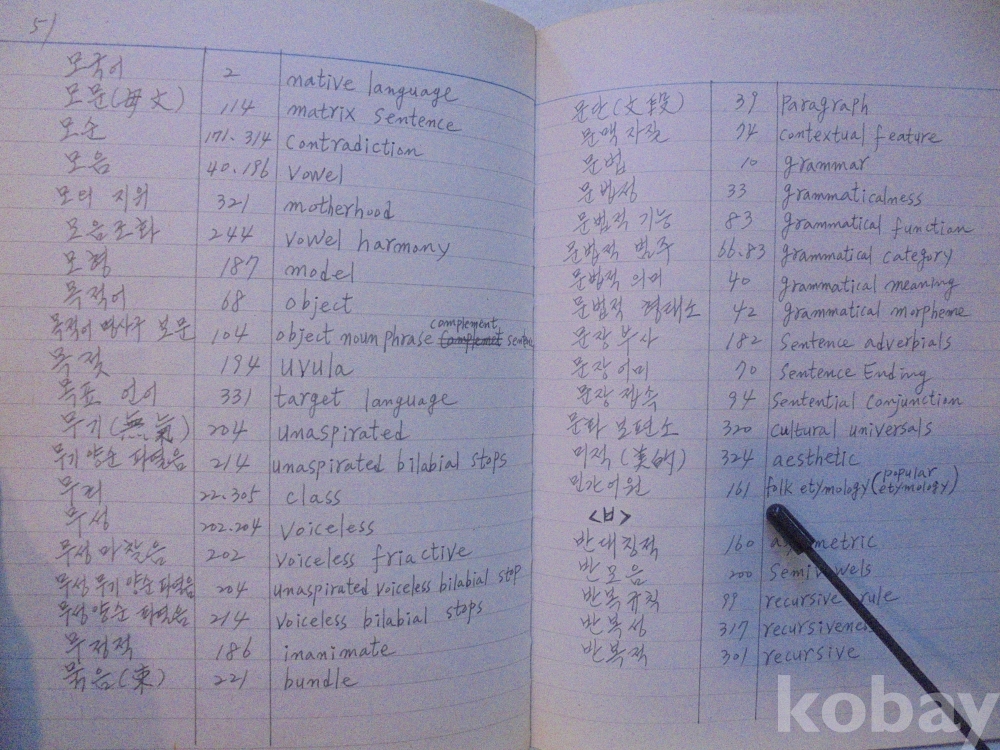 51
모국어 2 native language
모문(母文) 114 matrix sentence
모순 171.314 contradiction
모음 40.186 vowel
모의 지위 321 motherhood
모음조화 244 vowel harmony
모형 187 model
목적어 68 object
목적어 명사구 보문 104 object noun phrase complement
목젖 194 uvula
목표 언어 331 target language
무기(無氣) 204 unaspirated
무기 양순 파열음 214 unaspirated bilabial stops
무리 22.305 class
무성 202.204 voiceless
무성 마찰음 202 voiceless friactive
무성 무기 양순 파열음 204 unaspirated voiceless bilabial stop
무성 양순 파열음 214 voiceless bilabial stops
무정적 186 inanimate
묶음(束) 221 bundle
문단(文段) 39 Paragraph
문맥 자질 74 contextual feature
문법 10 grammar
문법성 33 grammaticalness
문법적 기능 83 grammatical function
문법적 범주 66.83 grammatical category
문법적 의미 40 grammatical meaning
문법적 형태소 42 grammatical morpheme
문장 부사 182 Sentence adverbials
문장 어미 70 Sentence Ending
문장 접속 94 Sentential Conjunction
문화 보편소 320 cultural universals
미적(美的) 324 aesthetic
민간어원 161 folk etymology(popular etymology)
<ㅂ>
반대칭적 160
반모음 200 Semivowels
반복규칙 99 recursive rule
반복성 317 recursiveness
반복적 301 recursive
kobay